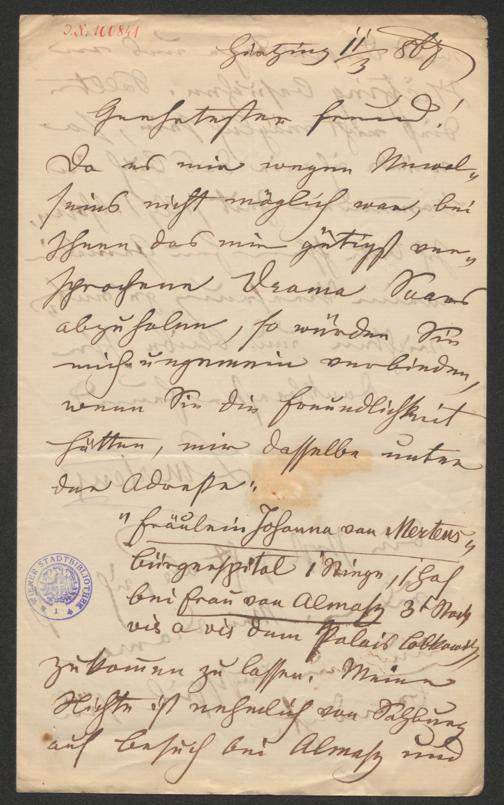 J.N. 100841
11/3 868
Geehrtester Freund!
Da es mir wegen Unwol-
seins nicht möglich war, bei
Ihnen das mir gütigst ver-
sprochene Drama Saars
abzuholen, so würden Sie
mich ungemein verbinden,
wenn Sie die Freundlichkeit
hätten, mir dasselbe unter
der Adresse:
"Fräulein Johanna von Mertens"
bürgerspital 1 Stiege, 1 Hof
bei Frau von Almasy 3t Stock
vis a vis dem Palais Lobkowitz
zukommen zu lassen. Meine
Nichte ist nehmlich von Salzburg
auf Besuch bei Almasy und
WIENER STADTBIBLIOTHEK